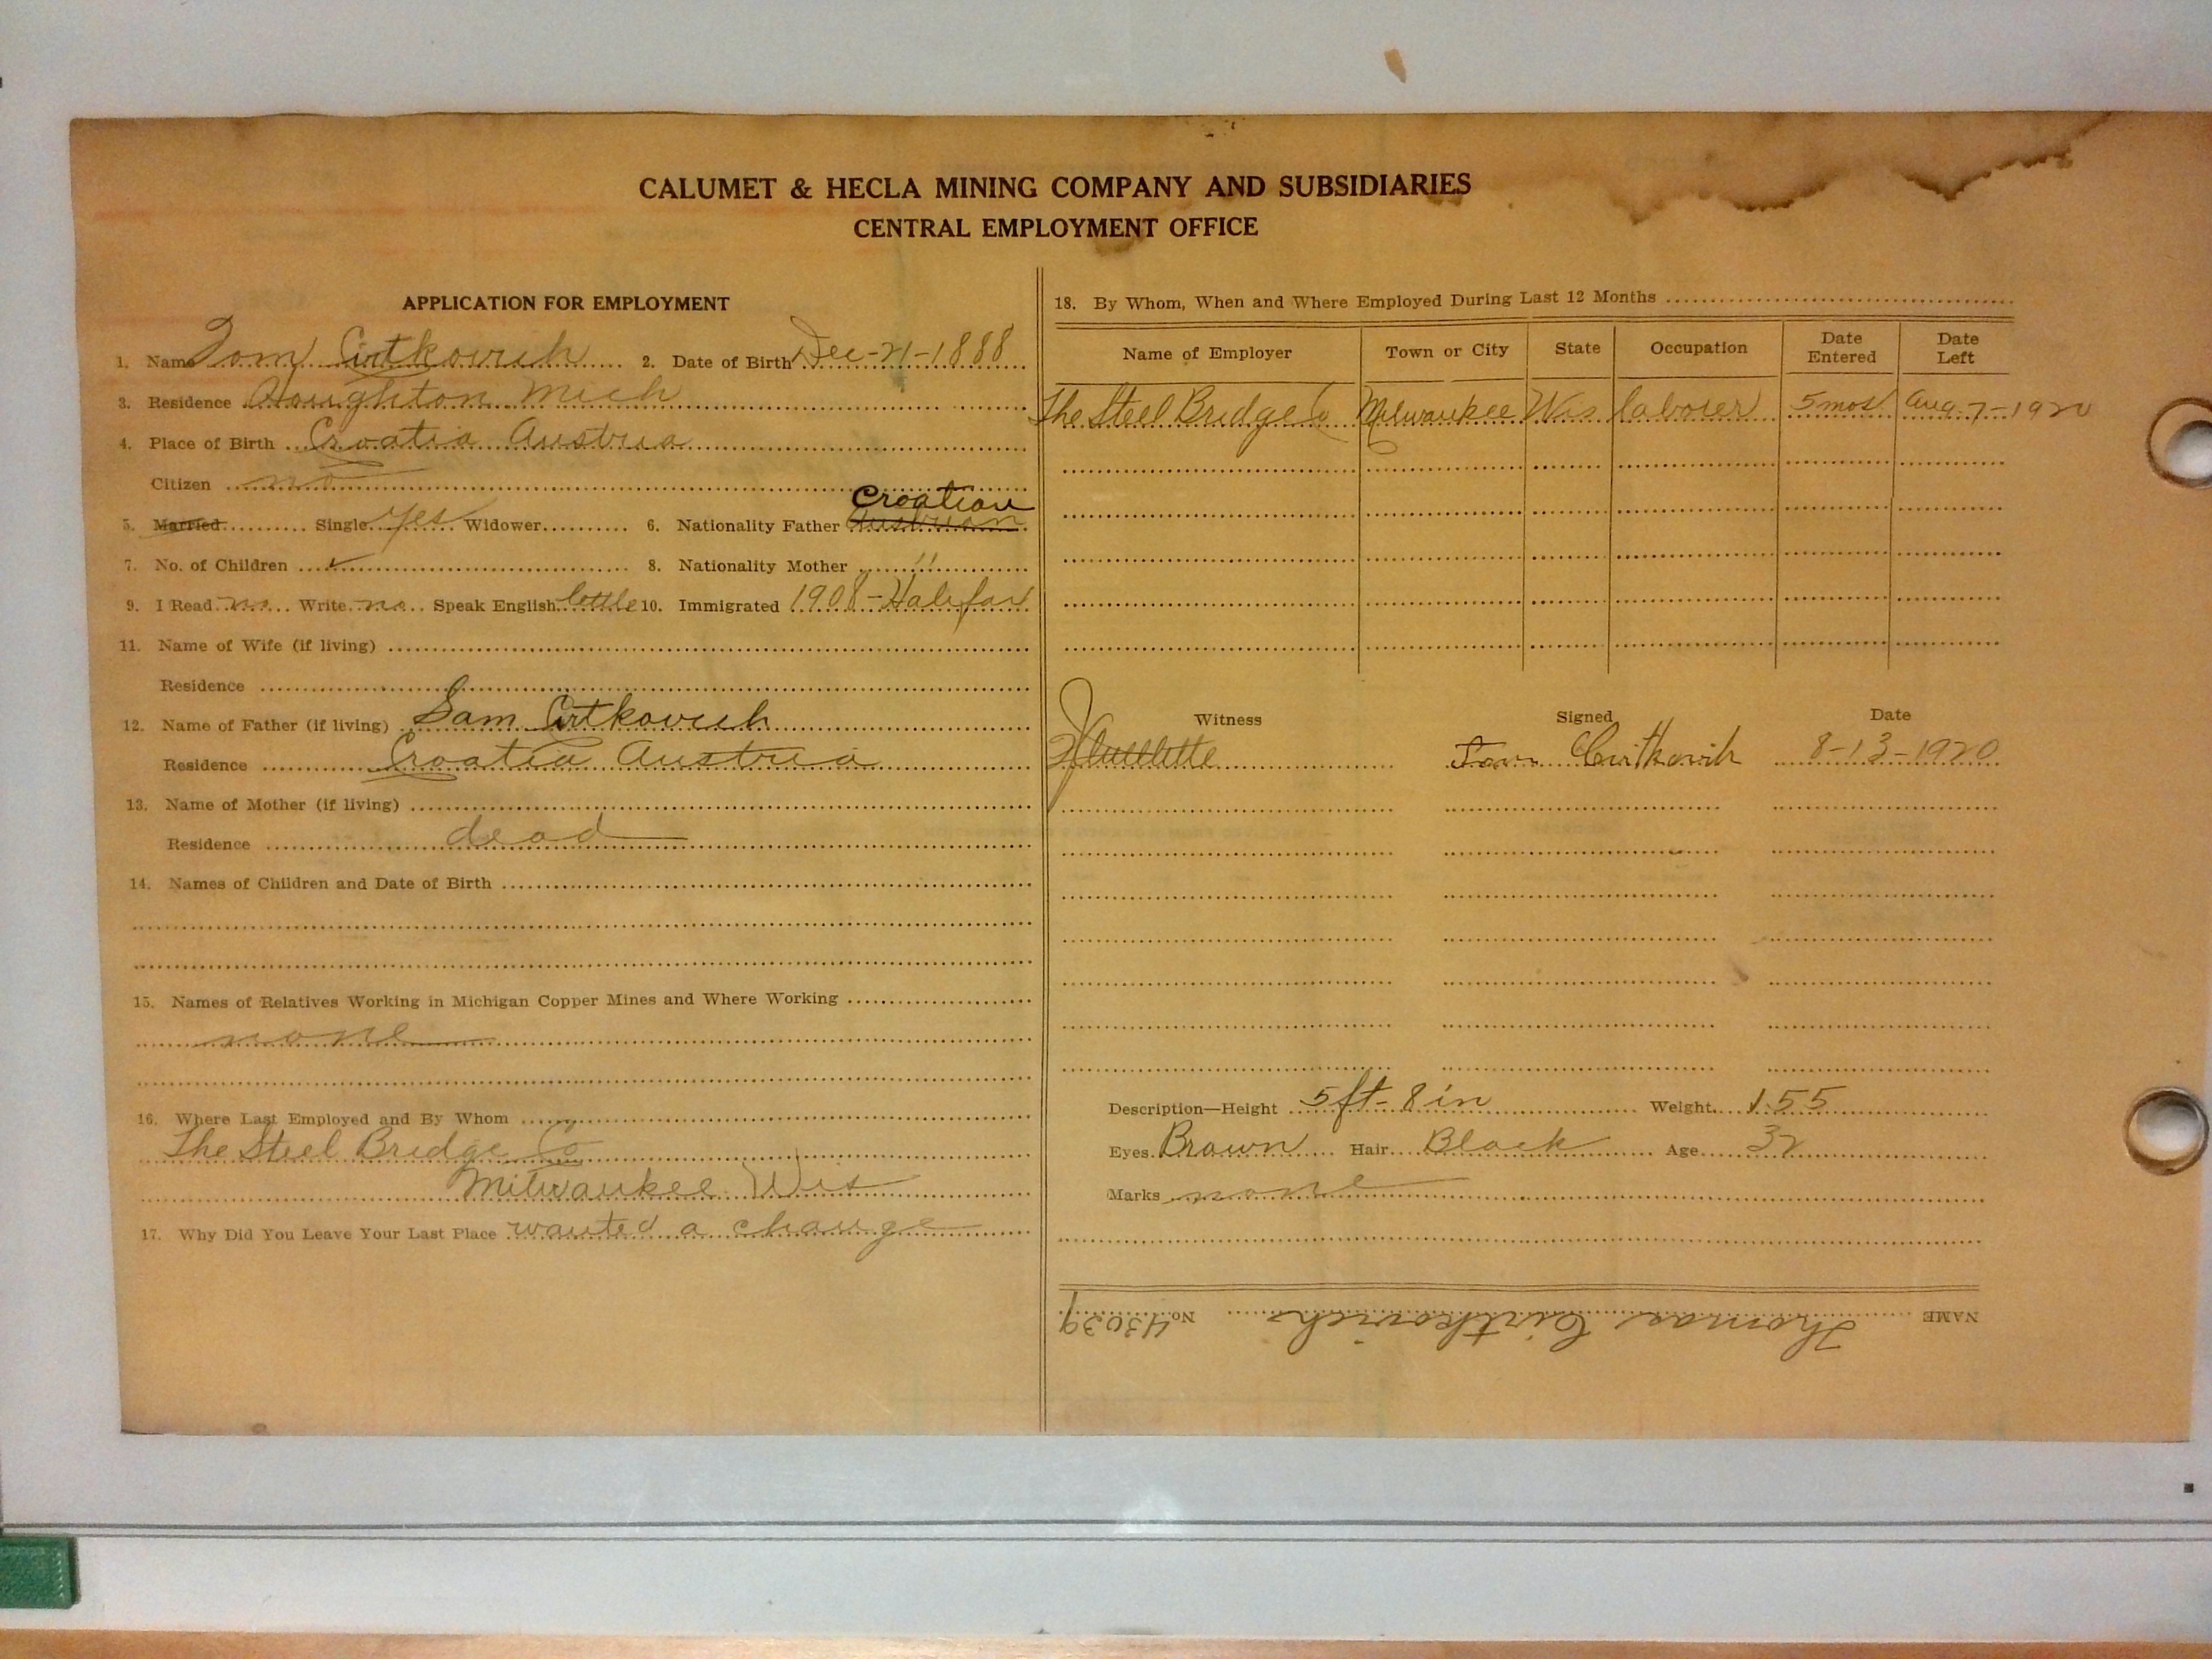 CALUMET & HECLA MINING COMPANY AND SUBSIDIARIES
CENTRAL EMPLOYMENT OFFICE
APPLICATION FOR EMPLOYMENT
1. Name Tom Cirtkovich 2. Date of Birth Dec-21-1888
3. Residence Houghton Mich
4. Place of Birth Croatia Austria
Citizen no
5. Married Single yes Widower 6. Nationality Father Austrian Croatian
7. No. of Children ✓ 8. Nationality Mother "
9. I Read no Write no Speak English little 10. Immigrated 1908-Halifax
11. Name of Wife (if living)
Residence
12. Name of Father (if living) Sam Cirtkovich
Residence Croatia Austria
13. Name of Mother (if living)
Residence dead
14. Names of Children and Date of Birth
15. Names of Relatives Working in Michigan Copper Mines and Where Working
none
16. Where Last Employed and By Whom
The Steel Bridge Co
Milwaukee Wis
17. Why Did You Leave Your Last Place wanted a change
18. By Whom, When and Where Employed During Last 12 Months
Name of Employer Town or City State Occupation Date Entered Date Left
The Steel Bridge Co Milwaukee Wis laborer 5 mos Aug-7-1920
Witness Signed Date
Tom Cirtkovich 8-13-1920
Description—Height 5 ft-8 in Weight 155
Eyes Brown Hair Black Age 32
Marks none
NAME Thomas Cirtkovich No. 43039